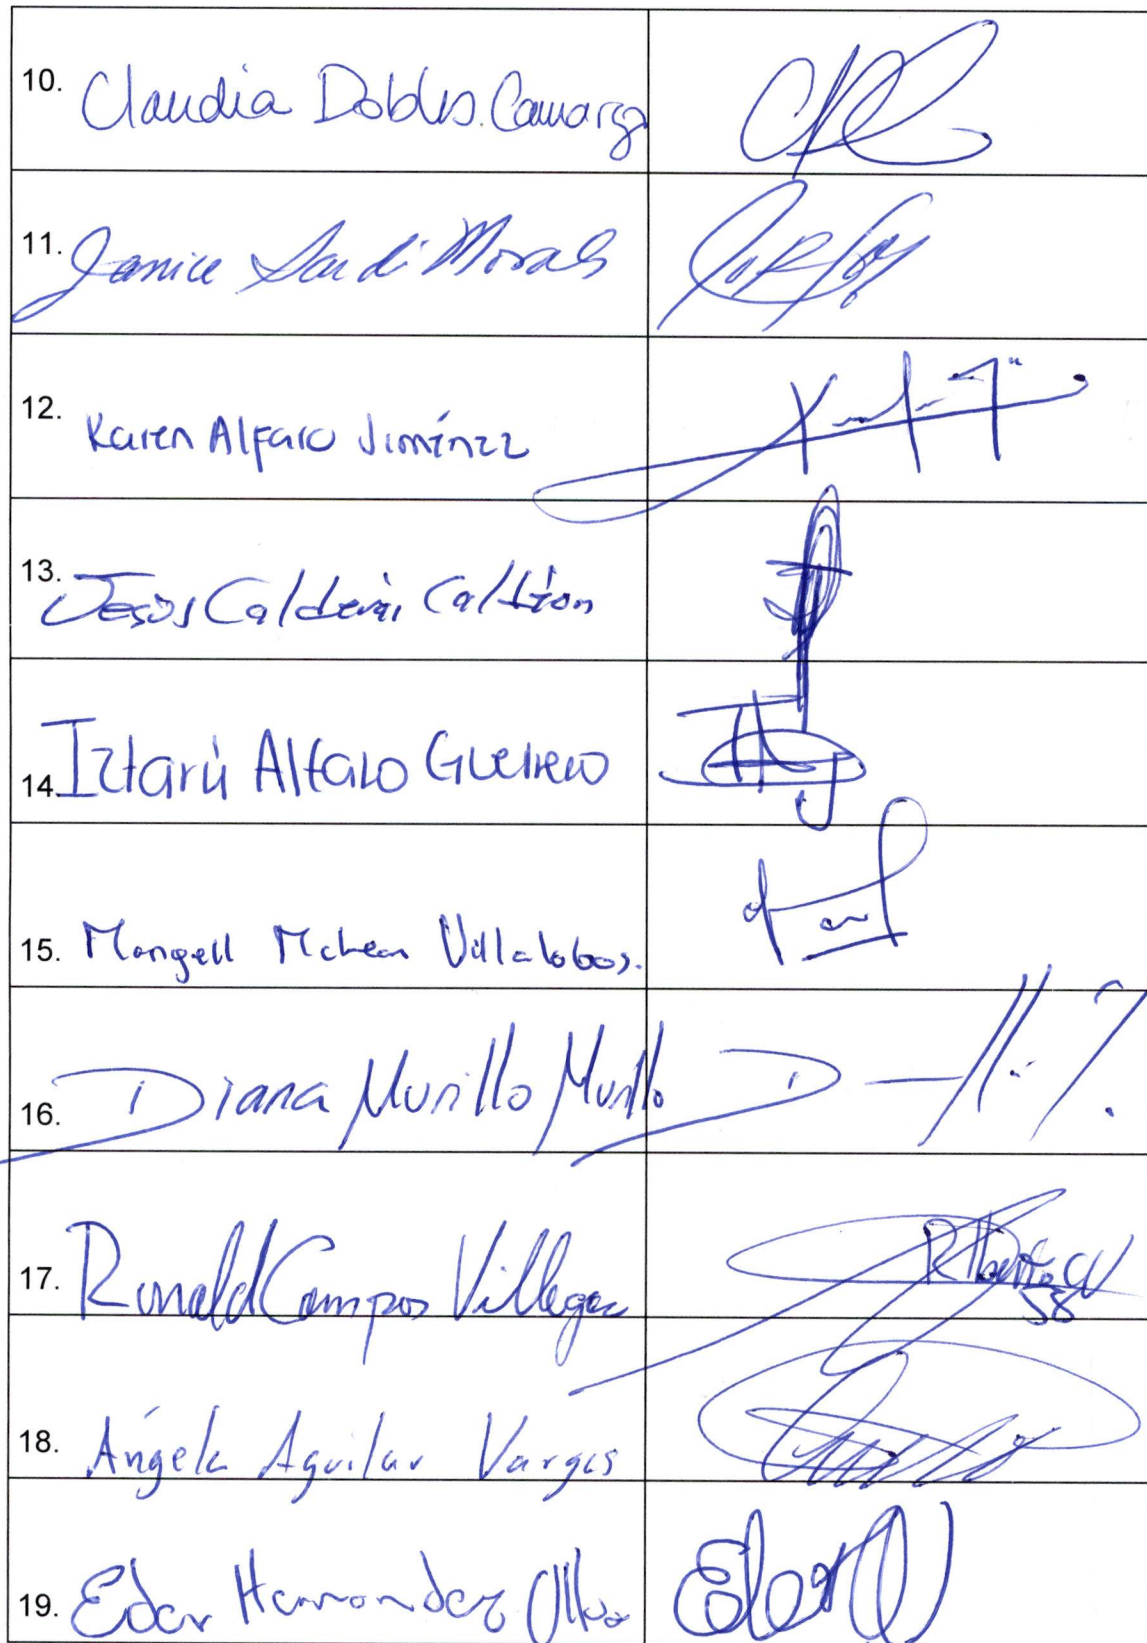 10. Claudia Dobles Camargo
11. Janice Sandí Morales
12. Karen Alfaro Jiménez
13. Jesús Calderón Calderón
14. Iztarú Alfaro Guerrero
15. Mongell McLean Villalobos.
16. Diana Murillo Murillo
17. Ronald Campos Villegas
58
18. Ángela Aguilar Vargas
19. Eder Hernandez Ulloa